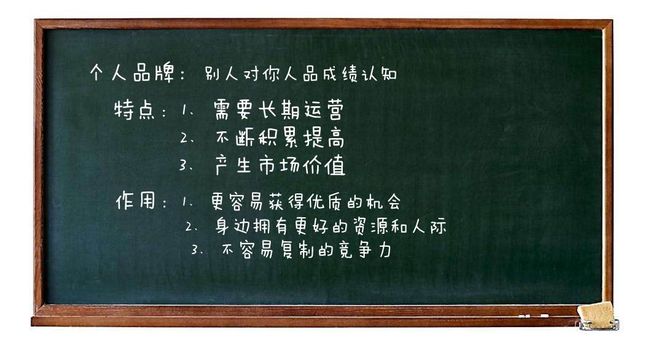 个人品牌：别人对你人品成绩认知
特点：1、需要长期运营
2、不断积累提高
3、产生市场价值
作用：1、更容易获得优质的机会
2、身边拥有更好的资源和人际
3、不容易复制的竞争力